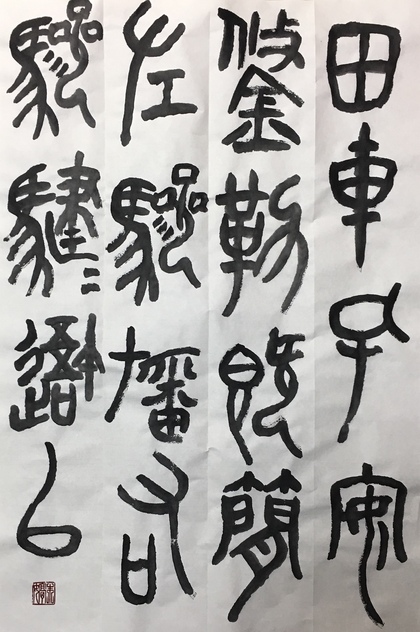 田車孔安
鋚勒既簡
左驂旛右
驂騝=以